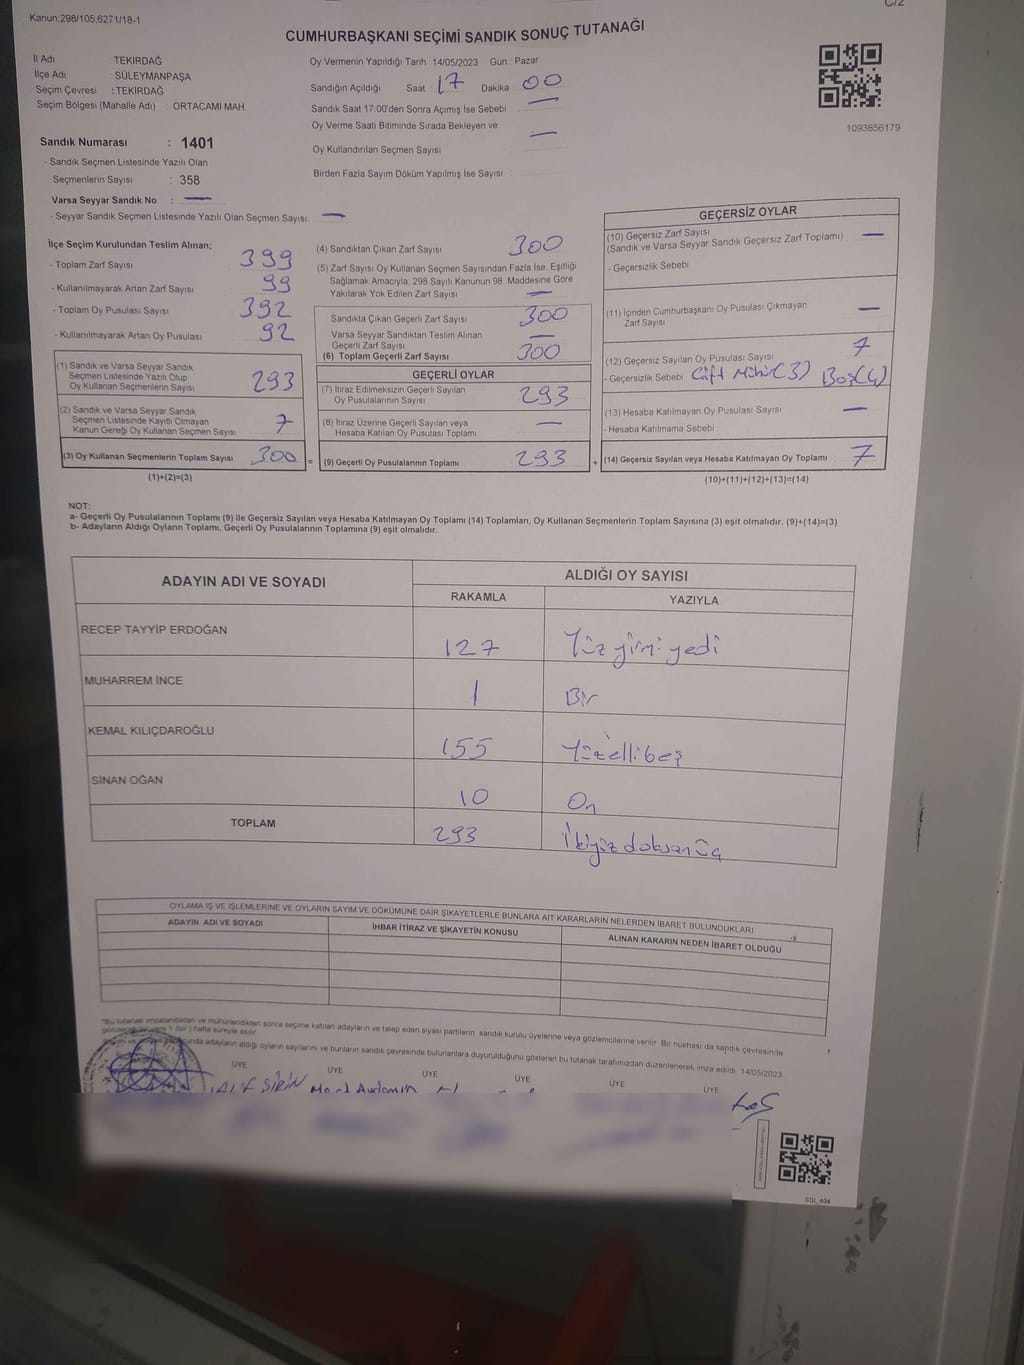 Kanun;298/105;6271/18-1
C/2
CUMHURBAŞKANI SEÇİMİ SANDIK SONUÇ TUTANAĞI
İl Adı : TEKİRDAĞ
İlçe Adı : SÜLEYMANPAŞA
Seçim Çevresi : TEKİRDAĞ
Seçim Bölgesi (Mahalle Adı) : ORTACAMİ MAH.
Oy Vermenin Yapıldığı Tarih : 14/05/2023 Gün : Pazar
Sandığın Açıldığı Saat : 17 Dakika 00
Sandık Saat 17:00'den Sonra Açımış İse Sebebi —
Oy Verme Saati Bitiminde Sırada Bekleyen ve
Oy Kullandırılan Seçmen Sayısı : —
Birden Fazla Sayım Döküm Yapılmış İse Sayısı :
1093856179
Sandık Numarası : 1401
- Sandık Seçmen Listesinde Yazılı Olan
Seçmenlerin Sayısı : 358
Varsa Seyyar Sandık No : —
- Seyyar Sandık Seçmen Listesinde Yazılı Olan Seçmen Sayısı: —
İlçe Seçim Kurulundan Teslim Alınan;
- Toplam Zarf Sayısı 399
- Kullanılmayarak Artan Zarf Sayısı 99
- Toplam Oy Pusulası Sayısı 392
- Kullanılmayarak Artan Oy Pusulası 92
(1) Sandık ve Varsa Seyyar Sandık
Seçmen Listesinde Yazılı Olup
Oy Kullanan Seçmenlerin Sayısı 293
(2) Sandık ve Varsa Seyyar Sandık
Seçmen Listesinde Kayıtlı Olmayan
Kanun Gereği Oy Kullanan Seçmen Sayısı 7
(3) Oy Kullanan Seçmenlerin Toplam Sayısı 300 =
(1)+(2)=(3)
(4) Sandıktan Çıkan Zarf Sayısı 300
(5) Zarf Sayısı Oy Kullanan Seçmen Sayısından Fazla İse, Eşitliği
Sağlamak Amacıyla; 298 Sayılı Kanunun 98. Maddesine Göre
Yakılarak Yok Edilen Zarf Sayısı —
Sandıkta Çıkan Geçerli Zarf Sayısı 300
Varsa Seyyar Sandıktan Teslim Alınan
Geçerli Zarf Sayısı —
(6) Toplam Geçerli Zarf Sayısı 300
GEÇERLİ OYLAR
(7) İtiraz Edilmeksizin Geçerli Sayılan
Oy Pusulalarının Sayısı 293
(8) İtiraz Üzerine Geçerli Sayılan veya
Hesaba Katılan Oy Pusulası Toplamı —
(9) Geçerli Oy Pusulalarının Toplamı 293 +
GEÇERSİZ OYLAR
(10) Geçersiz Zarf Sayısı
(Sandık ve Varsa Seyyar Sandık Geçersiz Zarf Toplamı) —
- Geçersizlik Sebebi
(11) İçinden Cumhurbaşkanı Oy Pusulası Çıkmayan
Zarf Sayısı —
(12) Geçersiz Sayılan Oy Pusulası Sayısı 7
- Geçersizlik Sebebi Çift Mühür(3) Boş(4)
(13) Hesaba Katılmayan Oy Pusulası Sayısı —
- Hesaba Katılmama Sebebi :
(14) Geçersiz Sayılan veya Hesaba Katılmayan Oy Toplamı 7
(10)+(11)+(12)+(13)=(14)
NOT:
a- Geçerli Oy Pusulalarının Toplamı (9) ile Geçersiz Sayılan veya Hesaba Katılmayan Oy Toplamı (14) Toplamları, Oy Kullanan Seçmenlerin Toplam Sayısına (3) eşit olmalıdır. (9)+(14)=(3)
b- Adayların Aldığı Oyların Toplamı, Geçerli Oy Pusulalarının Toplamına (9) eşit olmalıdır.
ADAYIN ADI VE SOYADI
ALDIĞI OY SAYISI
RAKAMLA YAZIYLA
RECEP TAYYİP ERDOĞAN 127 Yüz yirmi yedi
MUHARREM İNCE 1 Bir
KEMAL KILIÇDAROĞLU 155 Yüzellibeş
SİNAN OĞAN 10 On
TOPLAM 293 İkiyüzdoksanüç
OYLAMA İŞ VE İŞLEMLERİNE VE OYLARIN SAYIM VE DÖKÜMÜNE DAİR ŞİKAYETLERLE BUNLARA AİT KARARLARIN NELERDEN İBARET BULUNDUKLARI
ADAYIN ADI VE SOYADI
İHBAR İTİRAZ VE ŞİKAYETİN KONUSU
ALINAN KARARIN NEDEN İBARET OLDUĞU
*Bu tutanak imzalandıktan ve mühürlendikten sonra seçime katılan adayların ve talep eden siyasi partilerin sandık kurulu üyelerine veya gözlemcilerine verilir. Bir nüshası da sandık çevresinde
görülecek bir yere 1 (bir) hafta süreyle asılır.
adayların aldığı oyların sayılarını ve bunların sandık çevresinde bulunanlara duyurulduğunu gösteren bu tutanak tarafımızdan düzenlenerek imza edildi. 14/05/2023
ÜYE ÜYE ÜYE ÜYE ÜYE ÜYE
SSI_404